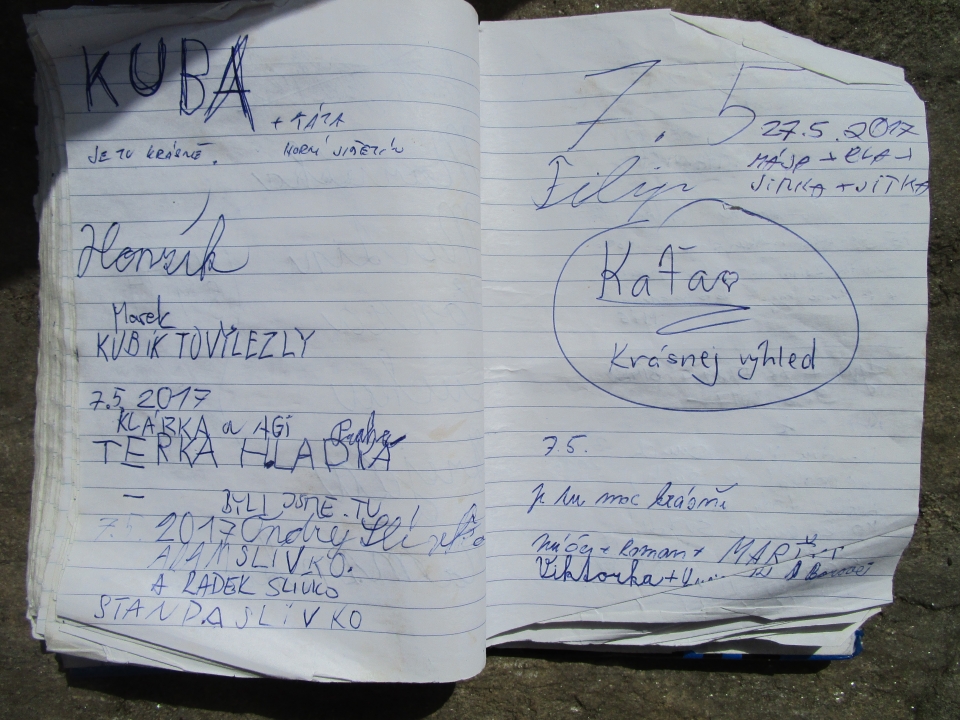 KUBA
+ KÁŤA
JE TU KRÁSNĚ.
HORNÍ JIŘETÍN
Honzík
Marek
KUBÍK TO VYLEZLY
7.5. 2017
KLÁRKA a AGI Praha
TERKA HLADKÁ
BYLI JSME TU
7.5. 2017 Ondrej
ADAM SLIVKO.
A RADEK SLIVKO
STANDA SLIVKO
7. 5
27.5.2017
MÁJA + ELA +
JIRKA + JITKA
Filip
Kaťa
Krásnej výhled
7.5.
je tu moc krásně
Roman +
Viktorka +